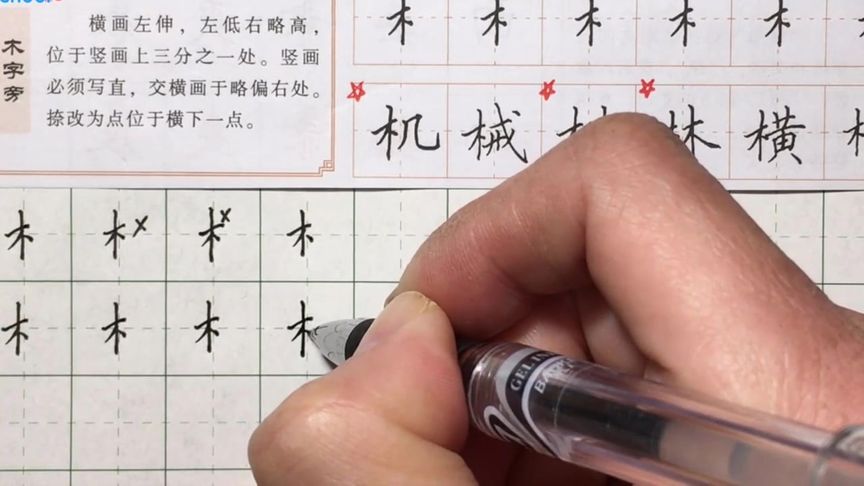 横画左伸，左低右略高，
位于竖画上三分之一处。竖画
必须写直，交横画于略偏右处。
捺改为点位于横下一点。
木字旁
木 木 木 木 木
机 械 林 横
木 木 木 木
木 木 木 木
GELIN